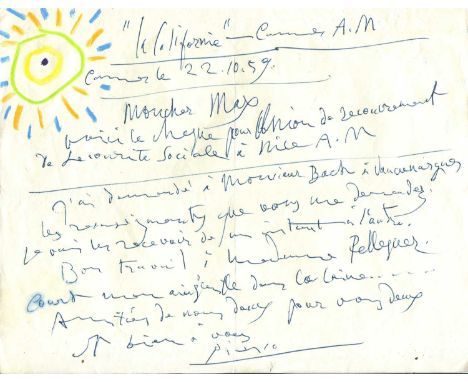 "la Californie" – Cannes A.M
Cannes le 22.10.59.
Moncher Max
voici le cheque pour l'Union de recouvrement
de Securite Sociale à Nice A.M
J'ai demandé à Monsieur Bach à Vauvenargues
les renseignements que vous me demandez.
je vais les recevoir de un instant à l'autre.
Bon travail à Madame Pellequer.
Court mon dans la laine......
Amitiés de nous deux pour vous deux
et bien à vous
Picasso